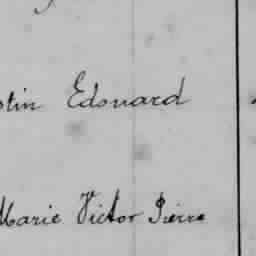 Edouard
Marie Victor Pierre